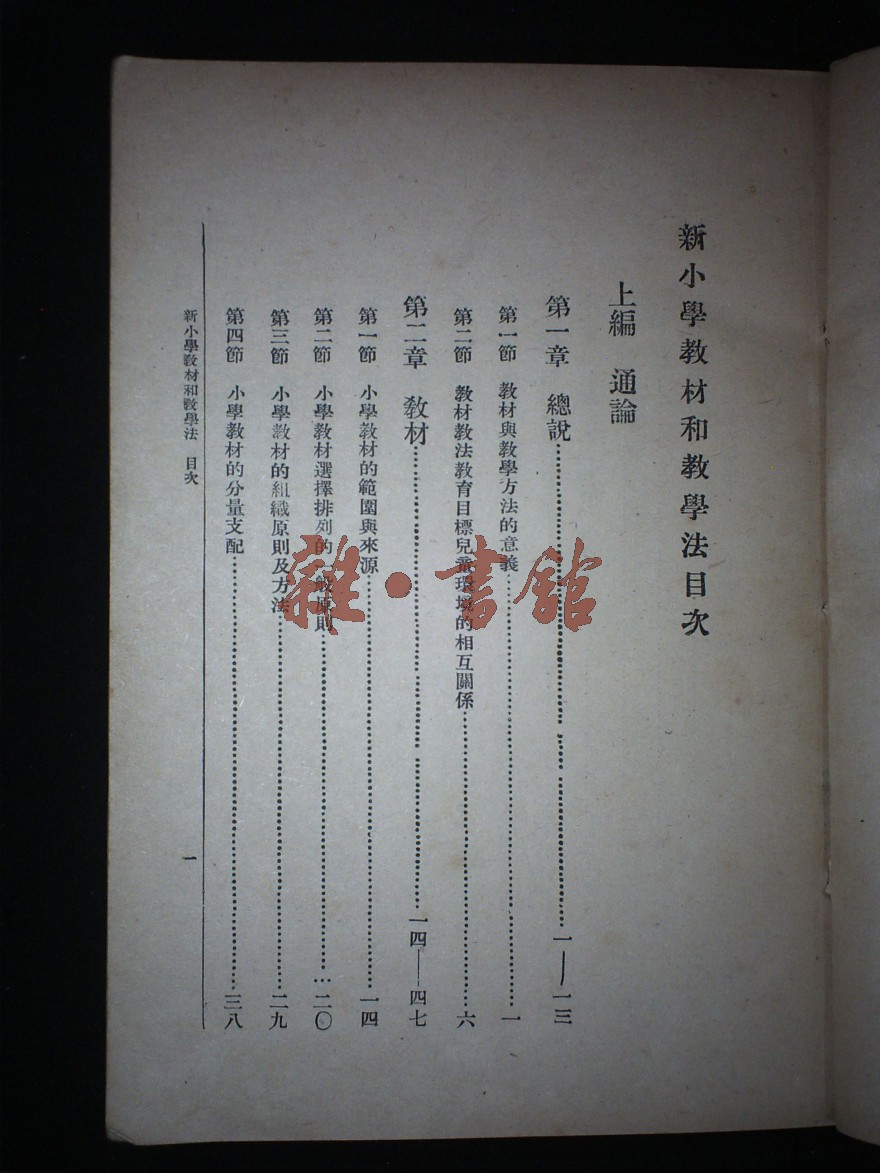 新小學教材和教學法目次
上編 通論
第一章 總說……一—一三
第一節 教材與教學方法的意義……一
第二節 教材教法教育目標兒童環境的相互關係……六
第二章 教材……一四—四七
第一節 小學教材的範圍與來源……一四
第二節 小學教材選擇排列的一般原則……二〇
第三節 小學教材的組織原則及方法……二九
第四節 小學教材的分量支配……三八
新小學教材和教學法 目次
一
雜·書館